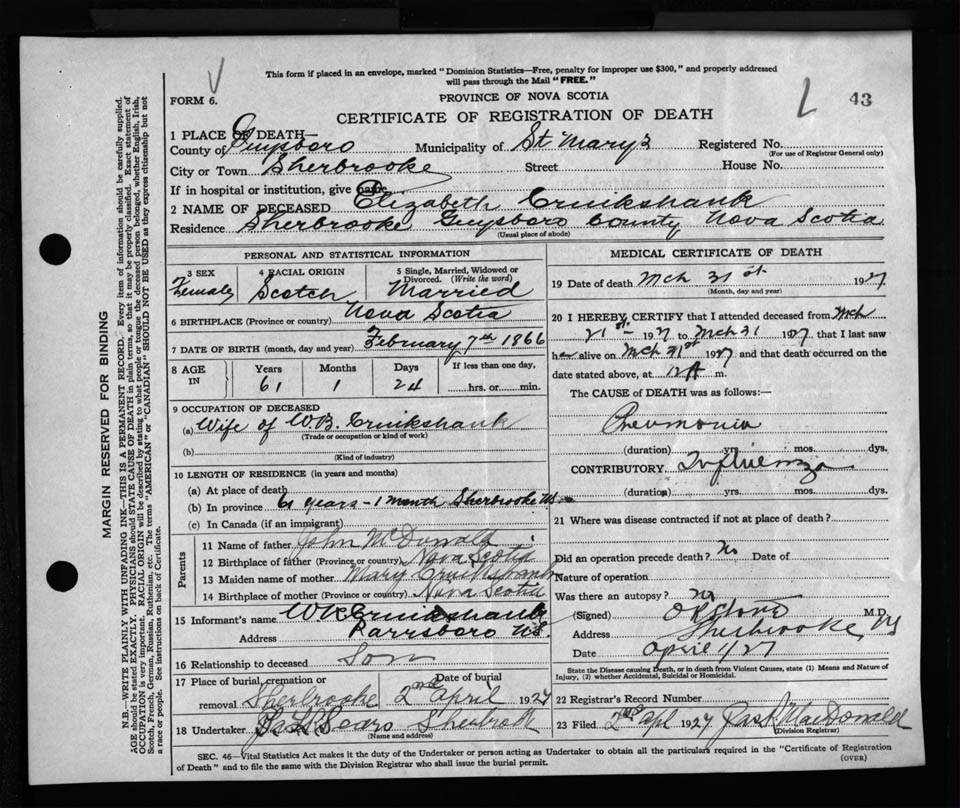 This form if placed in an envelope, marked "Dominion Statistics—Free, penalty for improper use $300," and properly addressed
will pass through the Mail "FREE."
FORM 6.
PROVINCE OF NOVA SCOTIA
L 43
CERTIFICATE OF REGISTRATION OF DEATH
1 PLACE OF DEATH—
County of Guysboro Municipality of St Mary's Registered No.
(For use of Registrar General only)
City or Town Sherbrooke Street House No.
If in hospital or institution, give name
2 NAME OF DECEASED Elizabeth Cruikshank
Residence Sherbrooke Guysboro County Nova Scotia
(Usual place of abode)
PERSONAL AND STATISTICAL INFORMATION
3 SEX Female
4 RACIAL ORIGIN Scotch
5 Single, Married, Widowed or Divorced. (Write the word) Married
6 BIRTHPLACE (Province or country) Nova Scotia
7 DATE OF BIRTH (month, day and year) February 7th 1866
8 AGE IN Years Months Days If less than one day,
61 1 24 hrs. or min.
9 OCCUPATION OF DECEASED
(a) Wife of W.B. Cruikshank
(Trade or occupation or kind of work)
(b)
(Kind of industry)
10 LENGTH OF RESIDENCE (in years and months)
(a) At place of death
(b) In province 61 years - 1 month Sherbrooke NS
(c) In Canada (if an immigrant)
Parents
11 Name of father John McDonald
12 Birthplace of father (Province or country) Nova Scotia
13 Maiden name of mother Mary Cruikshank
14 Birthplace of mother (Province or country) Nova Scotia
15 Informant's name Cruikshank
Address Parrsboro N.S.
16 Relationship to deceased Son
17 Place of burial, cremation or removal Date of burial
Sherbrooke 2nd April 1927
18 Undertaker Sears Sherbrook
(Name and address)
MEDICAL CERTIFICATE OF DEATH
19 Date of death Mch 31st 1927
(Month, day and year)
20 I HEREBY CERTIFY that I attended deceased from Mch
21st 1927 to Mch 31 1927, that I last saw
her alive on Mch 31st 1927 and that death occurred on the
date stated above, at 12 A m.
The CAUSE of DEATH was as follows:
Pneumonia
(duration) yrs. mos. dys.
CONTRIBUTORY Influenza
(duration) yrs. mos. dys.
21 Where was disease contracted if not at place of death?
Did an operation precede death? no Date of
Nature of operation
Was there an autopsy? no
(Signed) M.D.
Address Sherbrooke, NS
Date April 1/27
State the Disease causing Death, or in death from Violent Causes, state (1) Means and Nature of
Injury, (2) whether Accidental, Suicidal or Homicidal.
22 Registrar's Record Number
23 Filed 2nd Apl 1927 MacDonald
(Division Registrar)
SEC. 46—Vital Statistics Act makes it the duty of the Undertaker or person acting as Undertaker to obtain all the particulars required in the "Certificate of Registration
of Death" and to file the same with the Division Registrar who shall issue the burial permit.
(OVER)
MARGIN RESERVED FOR BINDING
N.B.—WRITE PLAINLY WITH UNFADING INK—THIS IS A PERMANENT RECORD. Every item of information should be carefully supplied.
AGE should be stated EXACTLY. PHYSICIANS should STATE CAUSE OF DEATH in plain terms, so that it may be properly classified. Exact statement of
OCCUPATION is very important. RACIAL ORIGIN will be described by stating to what people or tongue the deceased person belonged, whether English, Irish,
Scotch, French, German, Russian, Ruthenian, etc. The terms "AMERICAN" or "CANADIAN" SHOULD NOT BE USED as they express citizenship but not
a race or people. See instructions on back of Certificate.